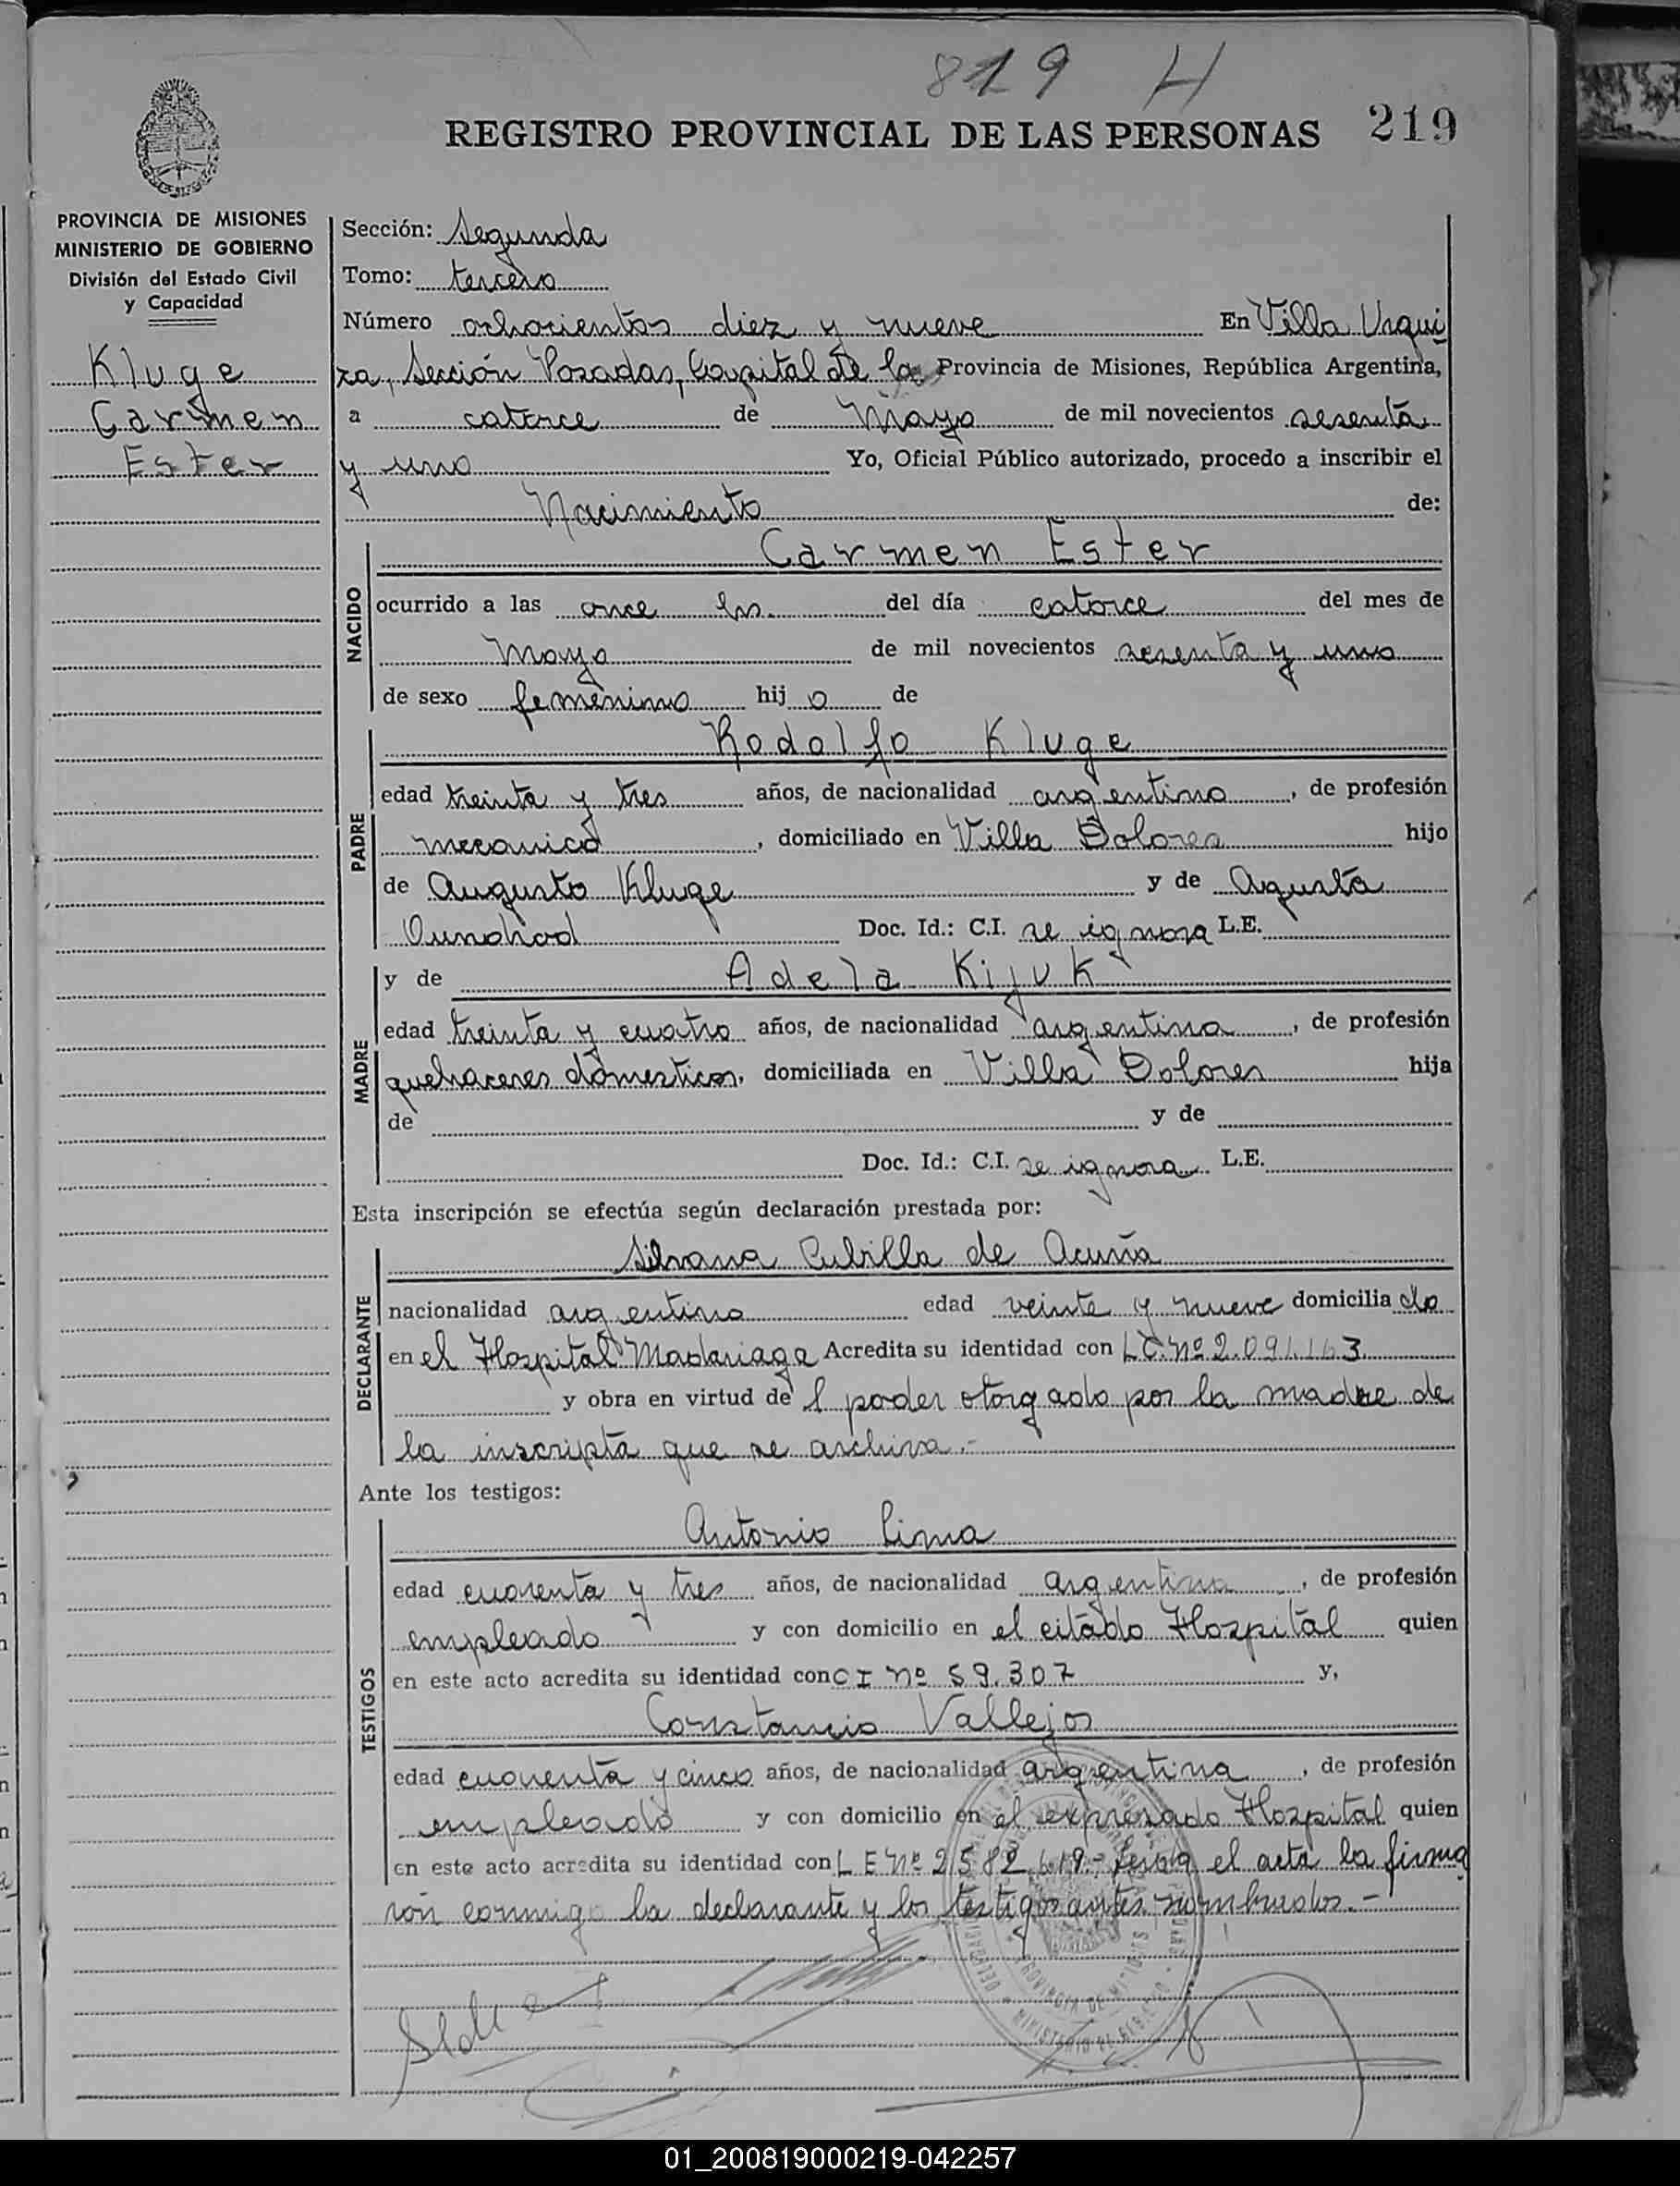 819 H
REGISTRO PROVINCIAL DE LAS PERSONAS 219
PROVINCIA DE MISIONES
MINISTERIO DE GOBIERNO
División del Estado Civil
y Capacidad
Kluge
Carmen
Ester
Sección: Segunda
Tomo: tercero
Número ochocientos diez y nueve En Villa Urqui
za, Sección Posadas, Capital de la Provincia de Misiones, República Argentina,
a catorce de Mayo de mil novecientos sesenta
y uno Yo, Oficial Público autorizado, procedo a inscribir el
Nacimiento de:
NACIDO
Carmen Ester
ocurrido a las once hs. del día catorce del mes de
Mayo de mil novecientos sesenta y uno
de sexo femenino hij o de
PADRE
Rodolfo Kluge
edad treinta y tres años, de nacionalidad argentino, de profesión
mecanico, domiciliado en Villa Dolores hijo
de Augusto Kluge y de Agusta
Doc. Id.: C.I. se ignora L.E.
MADRE
y de Adela Kijuk
edad treinta y cuatro años, de nacionalidad argentina, de profesión
quehaceres domesticos, domiciliada en Villa Dolores hija
de y de
Doc. Id.: C.I. se ignora L.E.
Esta inscripción se efectúa según declaración prestada por:
DECLARANTE
Silvana Cubilla de Acuña
nacionalidad argentina edad veinte y nueve domicilia da
en el Hospital Madariaga Acredita su identidad con L.C. Nº 2.091.163
y obra en virtud de l poder otorgado por la madre de
la inscripta que se archiva.-
Ante los testigos:
TESTIGOS
Antonio Lima
edad cuarenta y tres años, de nacionalidad argentina, de profesión
empleado y con domicilio en el citado Hospital quien
en este acto acredita su identidad con C I Nº 59.307 y,
Constancio Vallejos
edad cuarenta y cinco años, de nacionalidad argentina, de profesión
empleado y con domicilio en el expresado Hospital quien
en este acto acredita su identidad con L E Nº 2582.619.- Leida el acta la firma
ron conmigo la declarante y los testigos antes nombrados.-
01_200819000219-042257